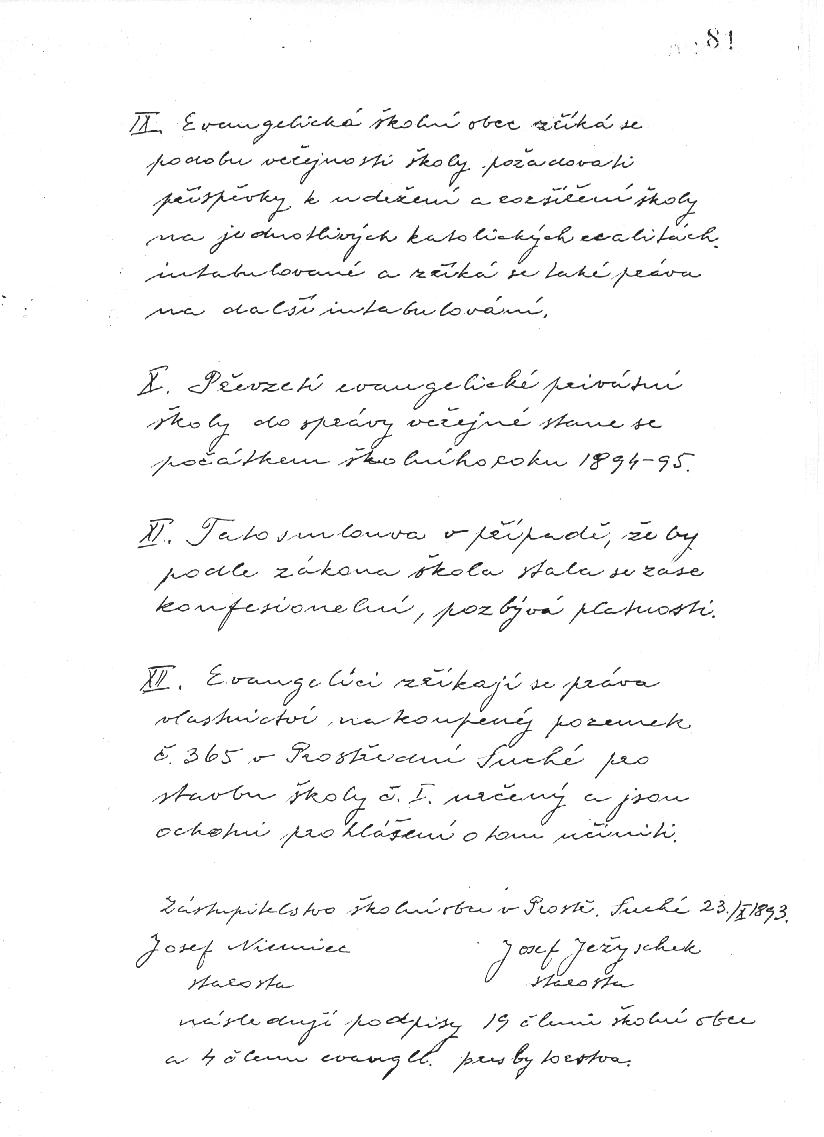 81
IX. Evangelická školní obec zříká se
podobu veřejnosti školy požadovati
příspěvky k udržení a rozšíření školy
na jednotlivých katolických realitách
intabulované a zříká se také práva
na další intabulování.
X. Převzetí evangelické privátní
školy do správy veřejné stane se
počátkem školního roku 1894-95.
XI. Tato smlouva v případě, že by
podle zákona škola stala se zase
konfesionelní, pozbývá platnosti.
XII. Evangelíci zříkají se práva
vlastnictví na koupený pozemek
č. 365 v Prostřední Suché pro
stavbu školy č. I. určený a jsou
ochotni prohlášení o tom učiniti.
Zástupitelstvo školní obce v Prostř. Suché 23./X 1893.
Josef Niemiec Josef Ježyschek
starosta starosta
následují podpisy 19 členů školní obce
a 4 členů evangel. presbyterstva.